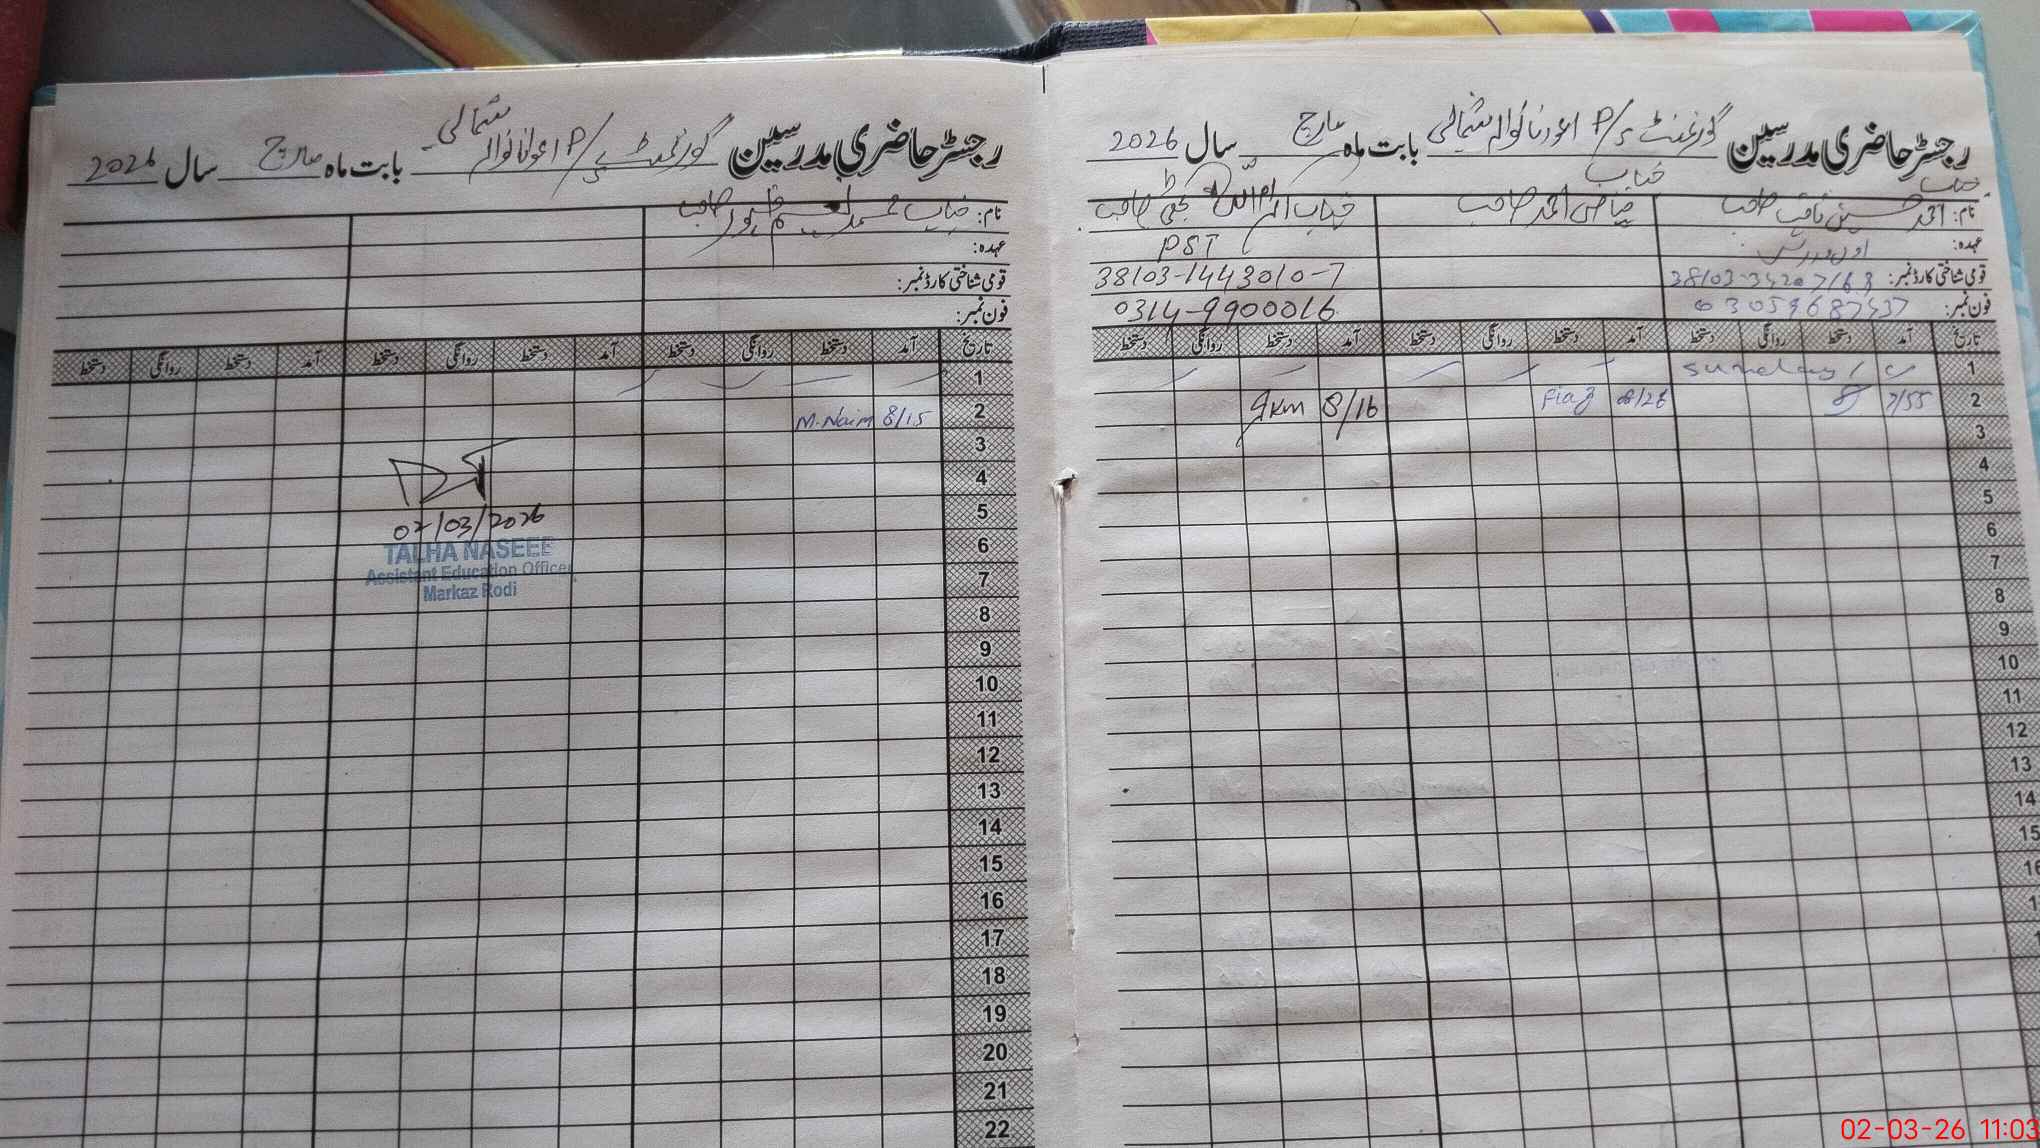 رجسٹر حاضری مدرسین گورنمنٹ P/S اعوانانوالہ شمالی بابت ماہ مارچ سال 2026
جناب
جناب
نام: احمد حسین ثاقب صاحب
فیاض احمد صاحب
صاحب
عہدہ:
PST
قومی شناختی کارڈ نمبر:
38103-1443010-7
فون نمبر: 03059687437
0314-9900016
تاریخ آمد دستخط روانگی دستخط آمد دستخط روانگی دستخط آمد دستخط روانگی دستخط
1 Sunday
2 7/55 08/26 Fiaz 8/16
3
4
5
6
7
8
9
10
11
12
13
14
15
16
رجسٹر حاضری مدرسین گورنمنٹ P/S اعوانانوالہ شمالی بابت ماہ مارچ سال 2026
نام: جناب محمد صاحب
عہدہ:
قومی شناختی کارڈ نمبر:
فون نمبر:
تاریخ آمد دستخط روانگی دستخط آمد دستخط روانگی دستخط
1
2 8/15 M.Naim
3
4
5
02/03/2026
6
TALHA NASEEE
Assistant Education Officer
7
Markaz Rodi
8
9
10
11
12
13
14
15
16
17
18
19
20
21
22
02-03-26 11:03